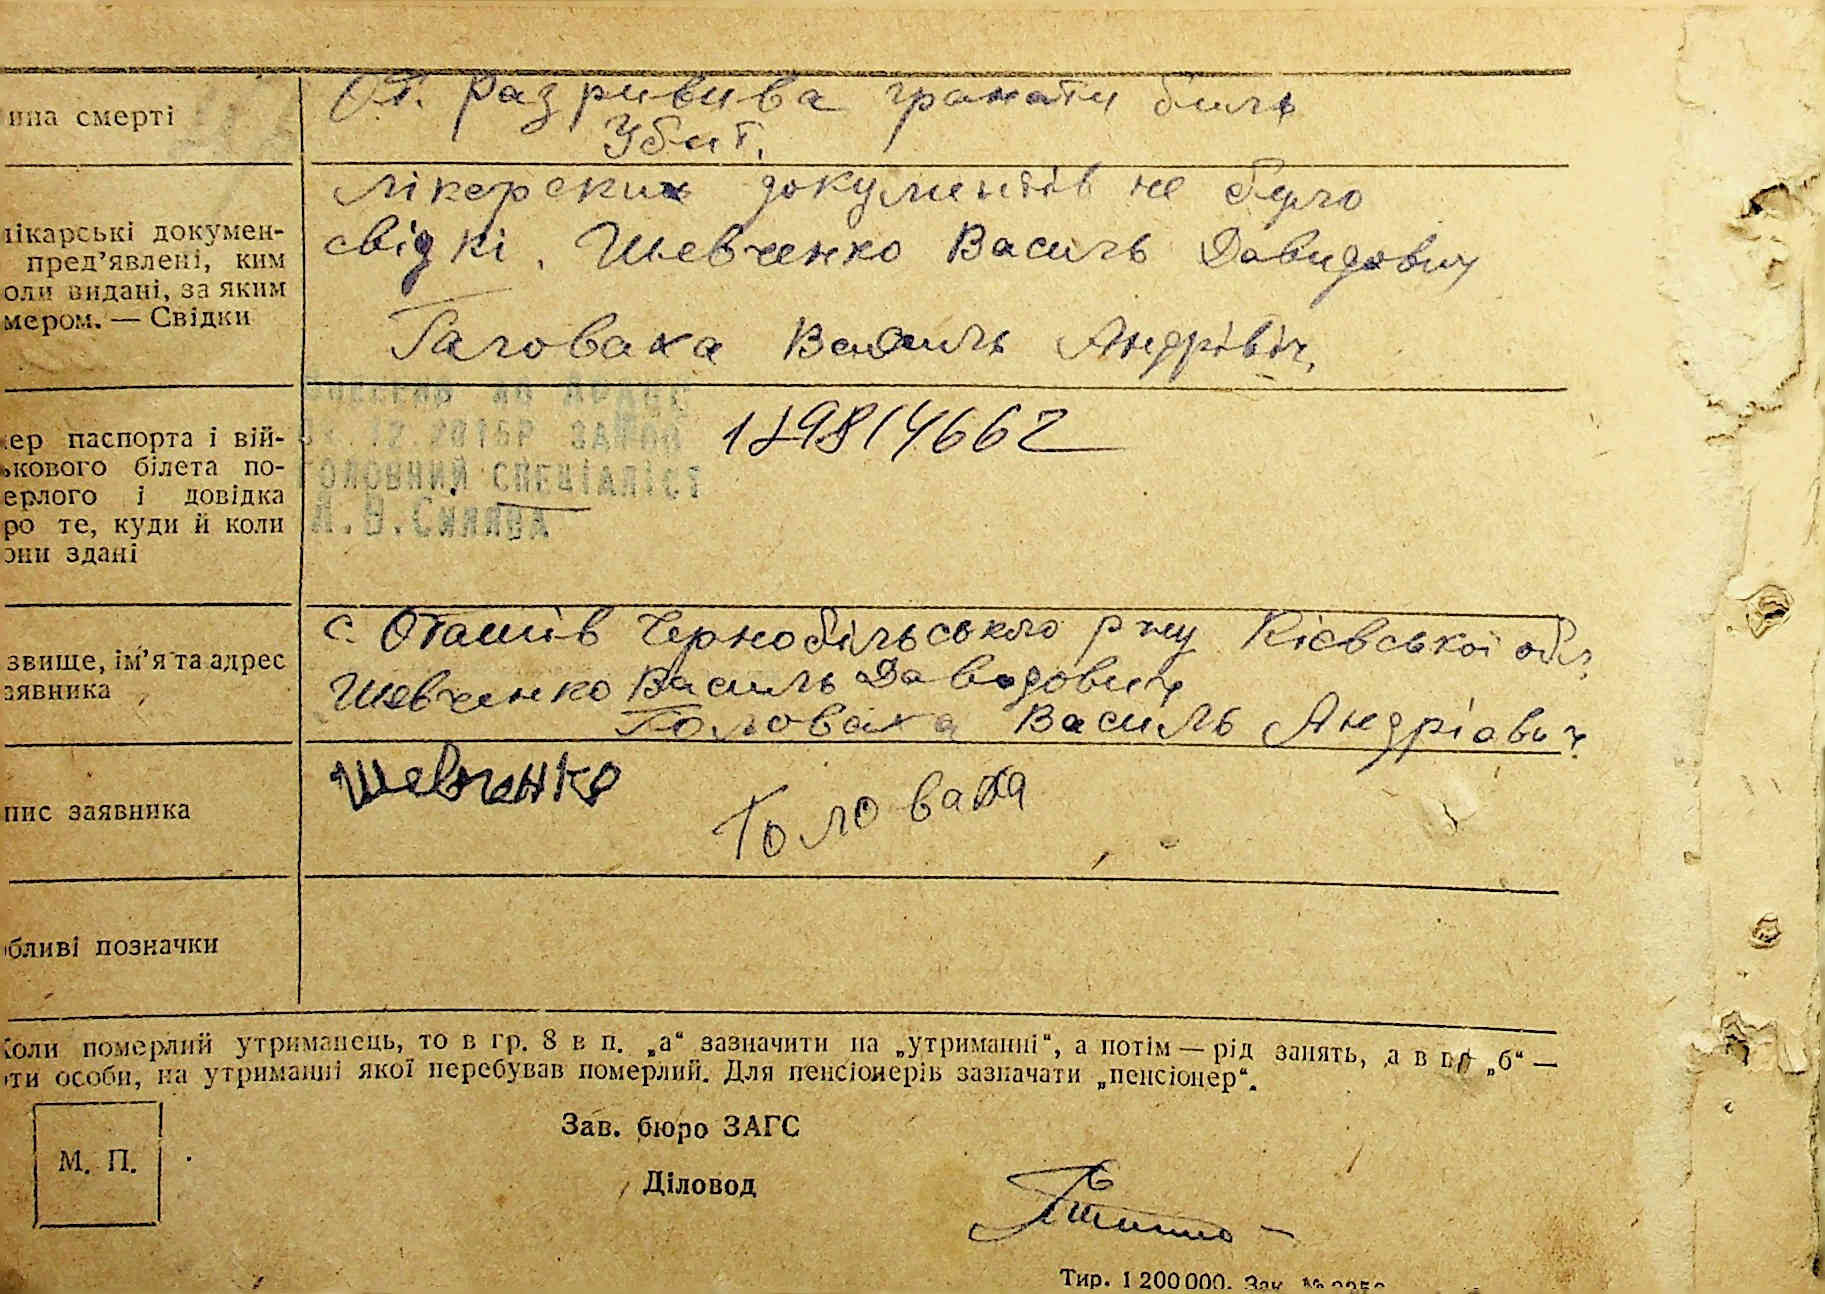 ина смерті
От. Разривива гранати биль
Убит.
лікарські докумен-
пред’явлені, ким
оли видані, за яким
мером. — Свідки
Лікерских документів не було
свідкі. Шевченко Василь Давидович
Галоваха Василь Андрівіч,
ер паспорта і вій-
ькового білета по-
ерлого і довідка
ро те, куди й коли
они здані
12.2016Р
ГОЛОВНИЙ СПЕЦІАЛІСТ
189814662
звище, ім’я та адрес
заявника
с. Оташів Чернобільського рну Кієвської обл,
Шевченко Василь Даводович
Головаха Василь Андріович
пис заявника
Шевченко
Головаха
обливі позначки
Коли померлий утриманець, то в гр. 8 в п. „а“ зазначити на „утриманні“, а потім — рід занять, а в п. „б“ —
ти особи, на утриманні якої перебував померлий. Для пенсіонерів зазначати „пенсіонер“.
Зав. бюро ЗАГС
М. П.
Діловод
Тир. 1 200 000. Зак. №